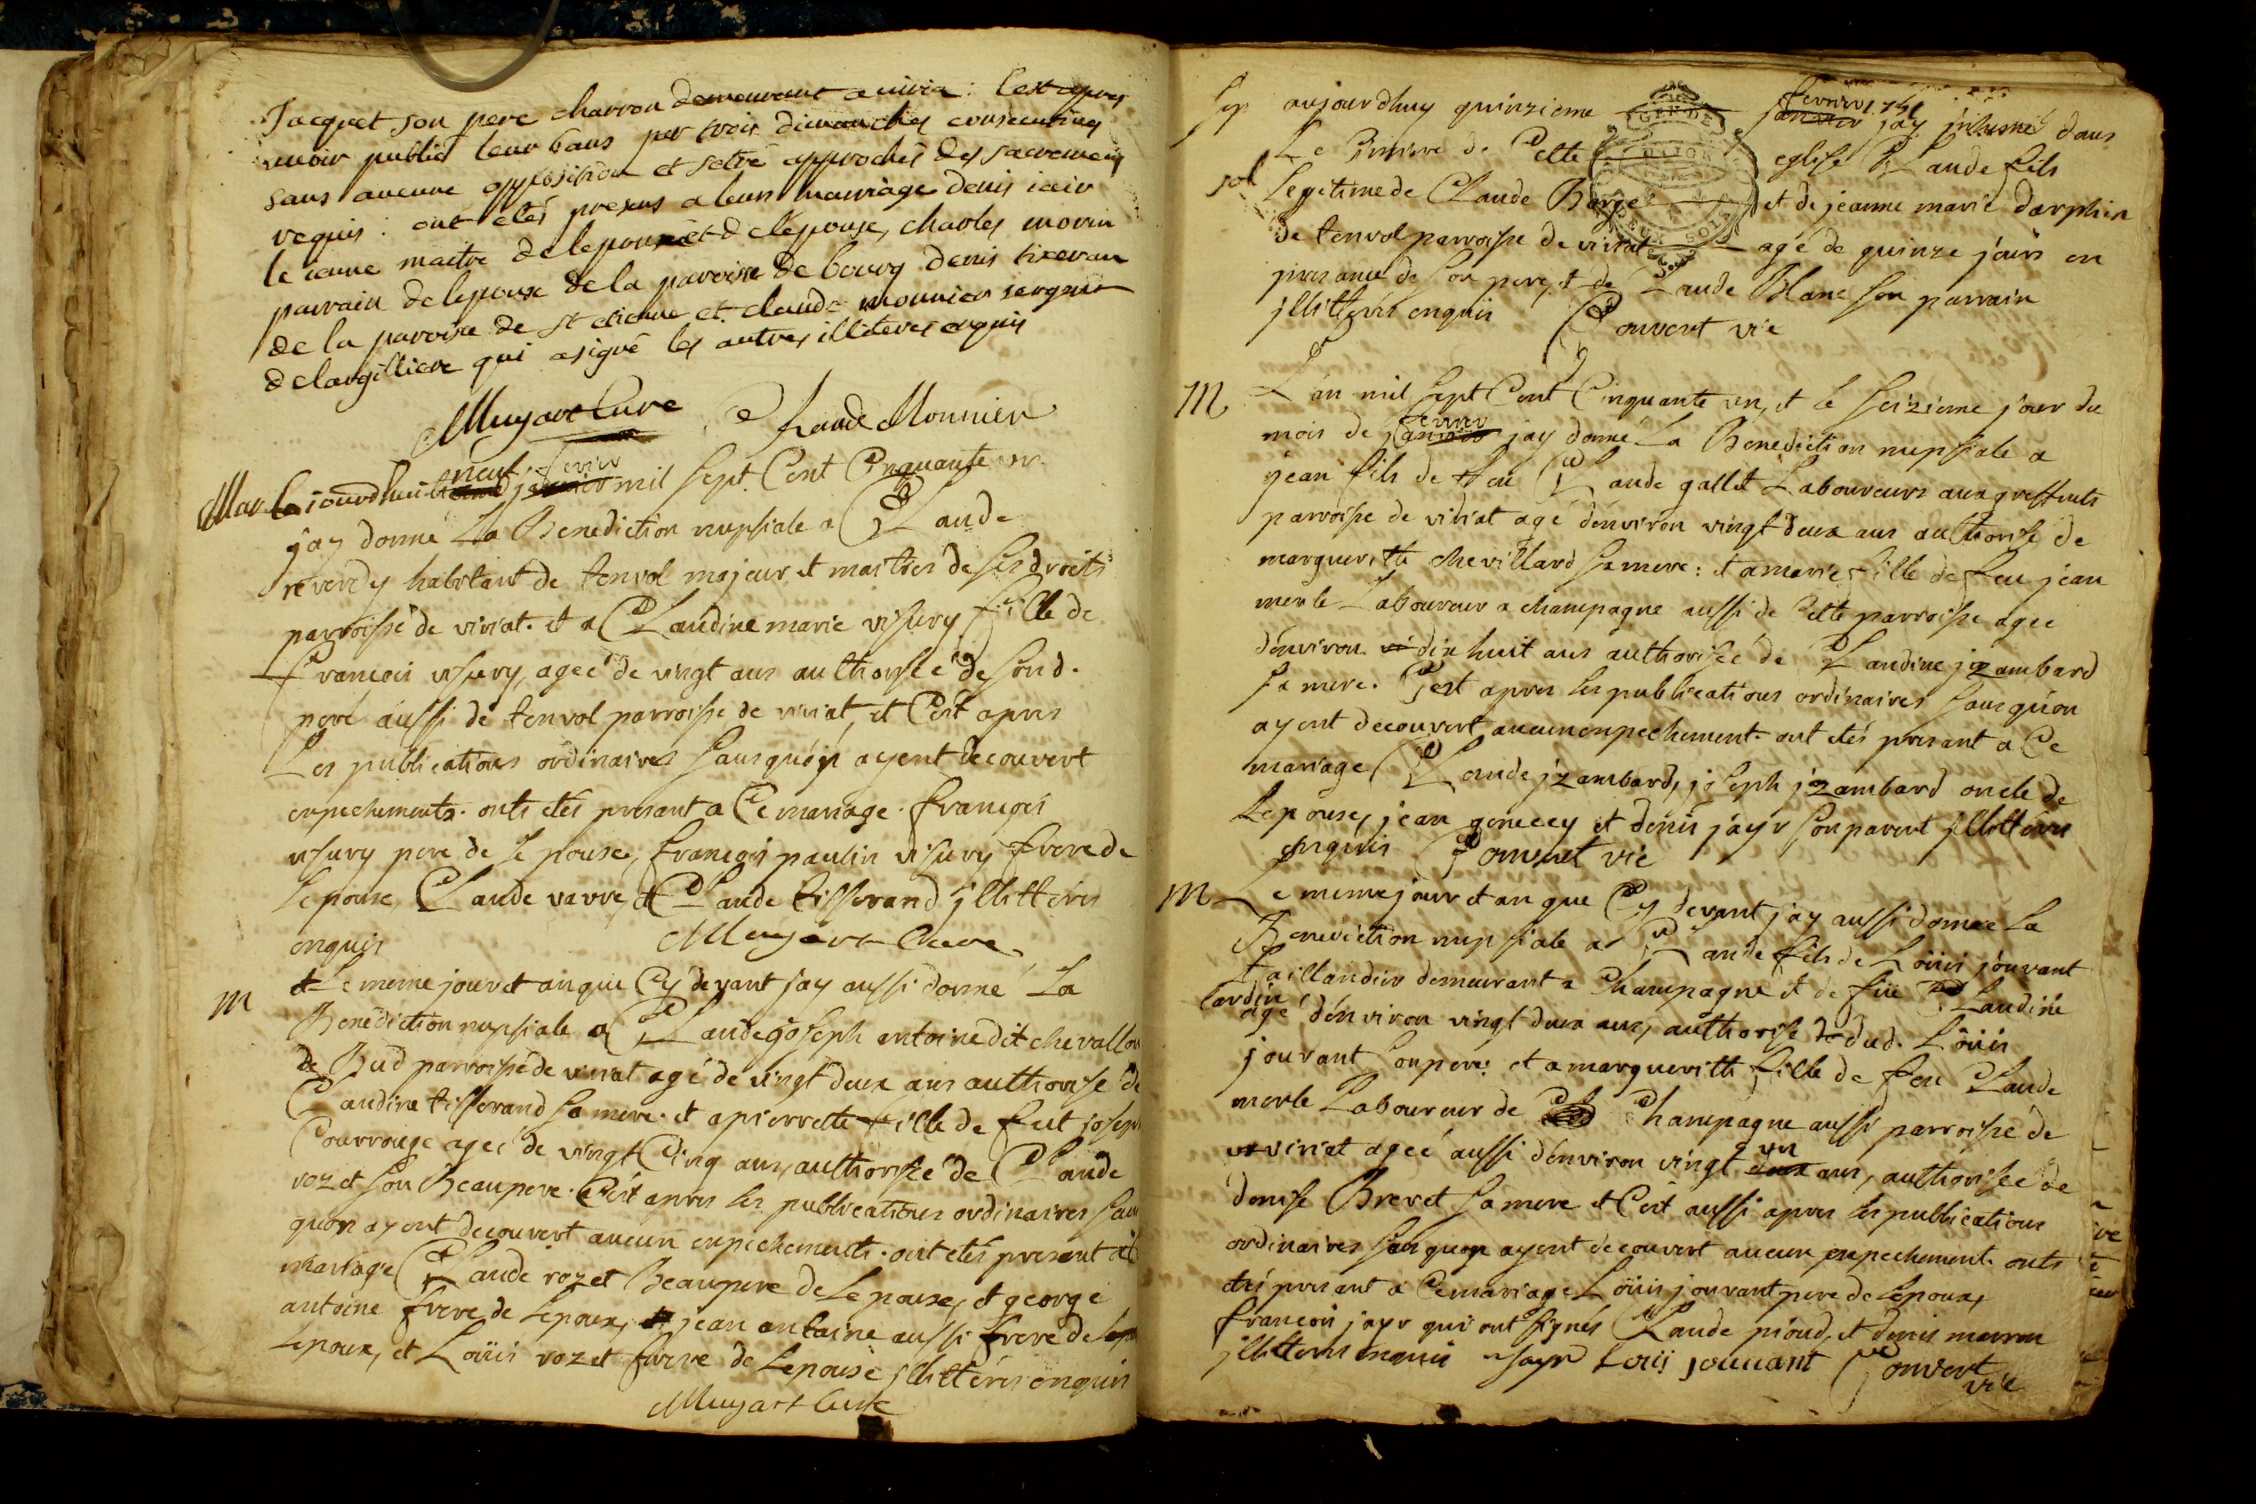 Jacquet son pere charron demeurant a viria : cest apres
avoir publié leur bans par trois dimanches consecutives
sans aucune opposition et setre approchés des sacremens
requis : ont etés presens a leur mariage denis
le jeune maitre de lepoux et de lepouse, charles morin
parrain de lepouse de la paroisse de bourg denis tixeran
de la paroisse de st etienne et claude monnier sergent
de largilliere qui a signé les autres illiteres enquis
Muyart Curé Claude Monnier
neuf fevrier
Mar jourdhui janvier mil Sept Cent Cinquante un
jay donné La Benediction nupsiale a Claude
reverdy habitant de tenvol majeur et maitres de Ses droits
parroisse de viriat. et a Claudine marie visury fille de
francois visury, agée de vingt ans authorisée de Sond.
pere aussi de tenvol parroisse de viriat, et Cest apres
Les publications ordinaires Sans quon ayent decouvert
enpechements. onts etés present a Ce mariage. francois
visury pere de le pouse, francois paulin visury frere de
le pouse, Claude varré, et Claude tisserand jllitterés
enquis Muyart Curé
m et Le meme jour et an que Cy devant jay aussi donné La
Benediction nupsiale a Claude joseph antoine dit chevallon
de Bud parroisse de viriat agé de vingt deux ans authorisé de
Claudine tisserand Sa mere. et a pierrette fille de feut joseph
Courrouge agée de vingt Cinq ans, authorisée de Claude
rozet Son Beaupere. Cest apres les publications ordinaires Sans
quon ayent decouvert aucun enpechements. ont etés present a Ce
mariage Claude rozet Beaupere de Le pouse, et george
antoine frere de Lepoux, jean antoine aussi frere de
Lepoux, et Loüis rozet frere de Lepouse jllitterés enquis
Muyart Curé
Sep aujourdhuy quinzieme fevrier 1751
janvier jay jnhumé dans
Le Cimitiere de Cette eglise Claude fils
sol legetime de Claude Barge et de jeanne marie darphin
de tenvol parroisse de viriat agé de quinze jours en
presance de Son pere, et de Claude Blanc Son parrain
jllitterés enquis Convert vic
m Lan mil Sept Cent Cinquante un, et le Seizieme jour du
fevrier
mois de janvier jay donné La Benediction nupsiale a
jean fils de feu Claude gallet Laboureurs aux greffets
parroisse de viriat agé denviron vingt deux ans authorisé de
margueritte chevillard Sa mere : et a marie fille de feu jean
merle Laboureur a champagne aussi de Cette parroisse agée
denviron dix huit ans authorisée de Claudine jzambard
Sa mere. Cest apres les publications ordinaires Sans quon
ayent decouvert aucun enpechement. ont etés present a Ce
mariage Claude jzambard, joseph jzambard oncle de
Lepouse, jean et denis jayr Son parent jllitterés
enquis Convert vic
m Le meme jour et an que Cy devant jay aussi donné La
Benediction nupsiale a Claude fils de Loüis jouvant
taillandier demeurant a Champagne et de füe Claudine
lardin agé denviron vingt deux ans, authorisé dud. Loüis
jouvant Son pere. et a margueritte fille de feu Claude
merle Laboureur de Champagne aussi parroisse de
un
viriat agée aussi denviron vingt deux ans, authorisée de
denise Brevet Sa mere et Cest aussi apres les publications
ordinaires Sans quon ayent decouvert aucun enpechement. onts
etés present a Ce mariage Loüis jouvant pere de Lepoux,
francois jayr qui ont signés Claude pioud, et denis
jllitterés enquis f jayr Louis jouvant Convert
vic